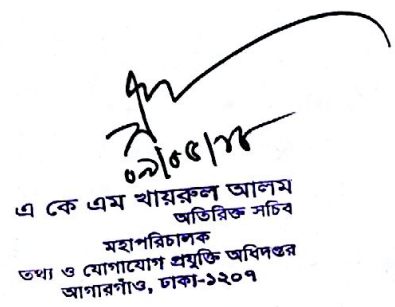 ০৯/০৫/১৮
এ কে এম খায়রুল আলম
অতিরিক্ত সচিব
মহাপরিচালক
তথ্য ও যোগাযোগ প্রযুক্তি অধিদপ্তর
আগারগাঁও, ঢাকা-১২০৭